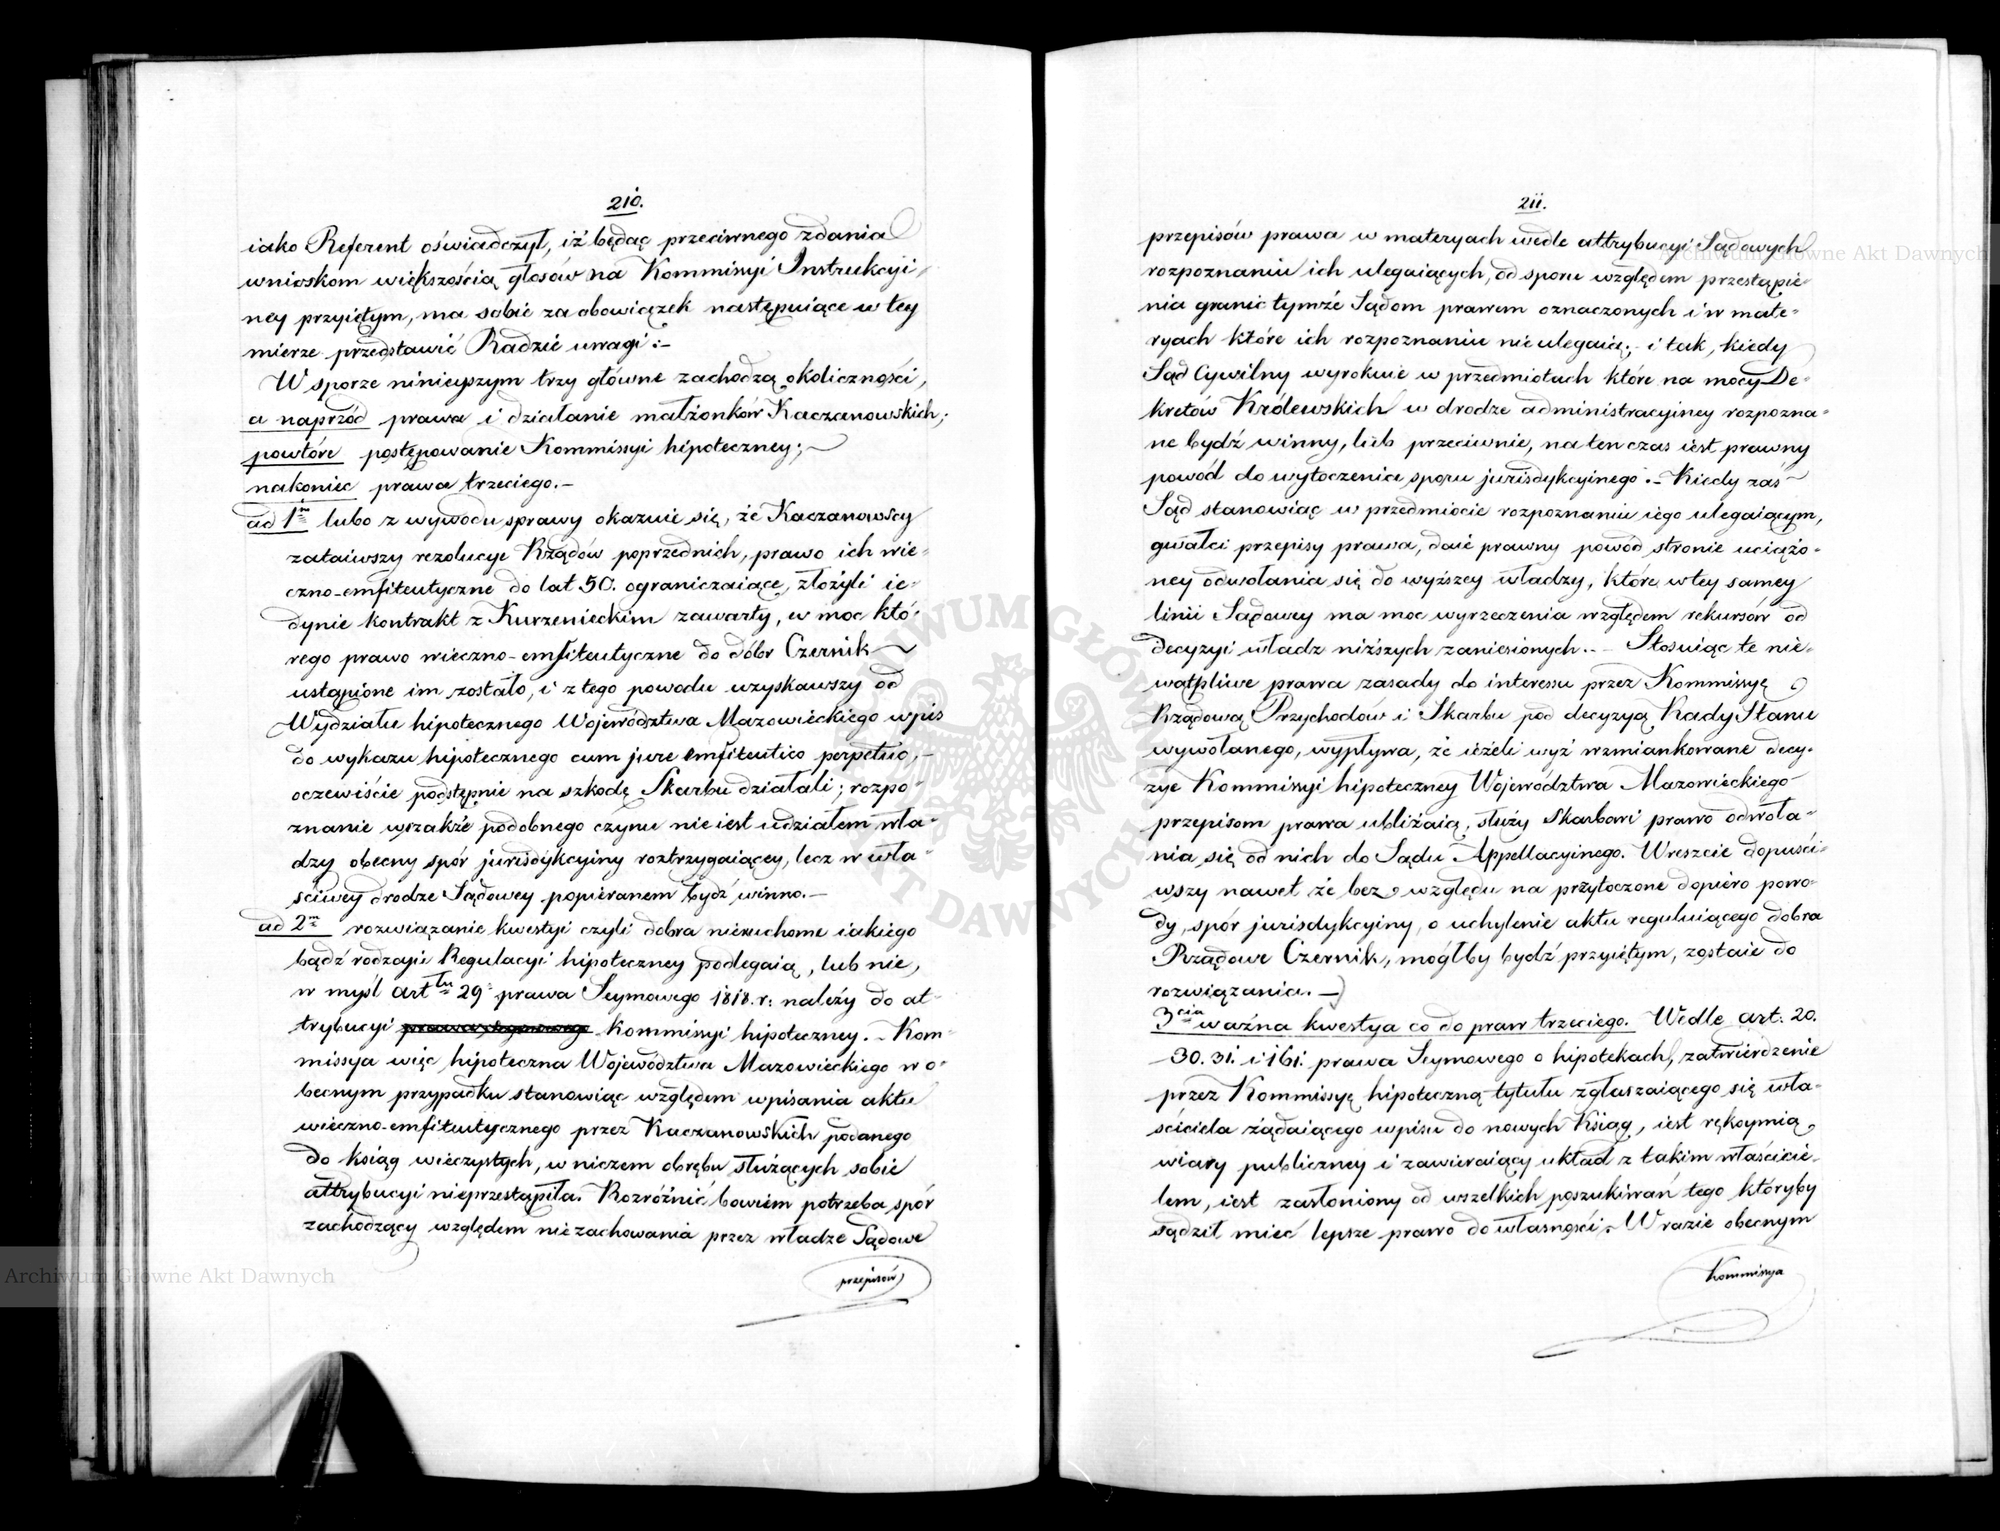 210.
iako Referent oświadczył, iż będąc przeciwnego zdania
wnioskom większością głosów na Kommissyi Instrukcyi-
ney przyiętym, ma sobie za obowiązek następuiące w tey
mierze przedstawić Radzie uwagi:-
W sporze ninieyszym trzy główne zachodzą okoliczności,
a naprzód prawa i działanie małżonków Kaczanowskich;
powtóre postępowanie Kommissyi hipoteczney;
nakoniec prawa trzeciego.-
ad 1m lubo z wywodu sprawy okazuie się, że Kaczanowscy
zataiwszy rezolucye Rządów poprzednich, prawo ich wie-
czno-emfiteutyczne do lat 50. ograniczaiące, złożyli ie-
dynie kontrakt z Kurzenieckim zawarty, w moc któ-
rego prawo wieczno-emfiteutyczne do dóbr Czernik
ustąpione im zostało, i z tego powodu uzyskawszy od
Wydziału hipotecznego Województwa Mazowieckiego wpis
do wykazu hipotecznego cum jure emfiteutico perpetuo,-
oczewiście podstępnie na szkodę Skarbu działali; rozpo-
znanie wszakże podobnego czynu nie iest udziałem wła-
dzy obecny spór jurisdykcyiny roztrzygaiącey, lecz w wła-
ściwey drodze Sądowey popieranem bydź winno.-
ad 2m rozwiązanie kwestyi czyli dobra nieruchome iakiego
bądź rodzaiu Regulacyi hipoteczney podlegaią, lub nie,
w myśl artłu 29o prawa Seymowego 1818. r: należy do at-
trybucyi Kommissyi hipoteczney.- Kom-
missya więc hipoteczna Województwa Mazowieckiego w o-
becnym przypadku stanowiąc względem wpisania aktu
wieczno-emfiteutycznego przez Kaczanowskich podanego
do ksiąg wieczystych, w niczem obrębu służących sobie
attrybucyi nieprzestąpiła. Rozróżnić bowiem potrzeba spór
zachodzący względem nie zachowania przez władze Sądowe
przepisów
211.
przepisów prawa w materyach wedle attrybucyi Sądowych
rozpoznaniu ich ulegaiących, od sporu względem przestąpie-
nia granic tymże Sądom prawem oznaczonych i w mate-
ryach które ich rozpoznaniu nie ulegaią;- i tak, kiedy
Sąd Cywilny wyrokuie w przedmiotach które na mocy De-
kretów Królewskich w drodze administracyiney rozpozna-
ne bydź winny, lub przeciwnie, na ten czas iest prawny
powód do wytoczenia sporu jurisdykcyinego.- Kiedy zaś
Sąd stanowiąc w przedmiocie rozpoznaniu iego ulegaiącym,
gwałci przepisy prawa, daie prawny powód stronie uciążo-
ney odwołania się do wyższey władzy, która w tey samey
linii Sądowey ma moc wyrzeczenia względem rekursów od
decyzyi władz niższych zaniesionych.- Stosuiąc te nie-
wątpliwe prawa zasady do interessu przez Kommissyę
Rządową Przychodów i Skarbu pod decyzyą Rady Stanu
wywołanego, wypływa, że ieżeli wyż wzmiankowane decy-
zye Kommissyi hipoteczney Województwa Mazowieckiego
przepisom prawa ubliżaią, służy Skarbowi prawo odwoła-
nia się od nich do Sądu Appellacyinego. Wreszcie dopuści-
wszy nawet że bez względu na przytoczone dopiero powo-
dy, spór jurisdykcyiny, o uchylenie aktu reguluiącego dobra
Rządowe Czernik, mógłby bydź przyiętym, zostaie do
rozwiązania.-
3cia ważna kwestya co do praw trzeciego. Wedle art: 20.
30. 31. i 161. prawa Seymowego o hipotekach, zatwierdzenie
przez Kommissyę hipoteczną tytułu zgłaszaiącego się wła-
ściciela żądaiącego wpisu do nowych Ksiąg, iest rękoymią
wiary publiczney i zawieraiący układ z takim właścicie-
lem, iest zasłoniony od wszelkich poszukiwań tego któryby
sądził mieć lepsze prawo do własności. W razie obecnym
Kommissya
Archiwum Główne Akt Dawnych
Archiwum Główne Akt Dawnych
ARCHIWUM GŁÓWNE AKT DAWNYCH